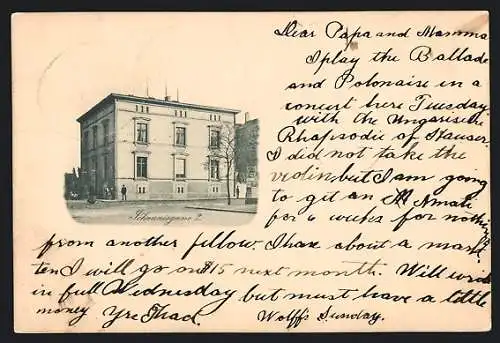 Dear Papa and Mamma
I play the Ballade
and Polonaise in a
concert here Tuesday
with the Ungarische
Rhapsodie of Hauser.
I did not take the
violin, but I am going
to git an Amati
for 6 weeks for nothing
from another fellow. I have about a mark
ten I will go on $15 next month. Will write
in full Wednesday but must have a little
money Yrs Thad.
Wolff's Sunday.